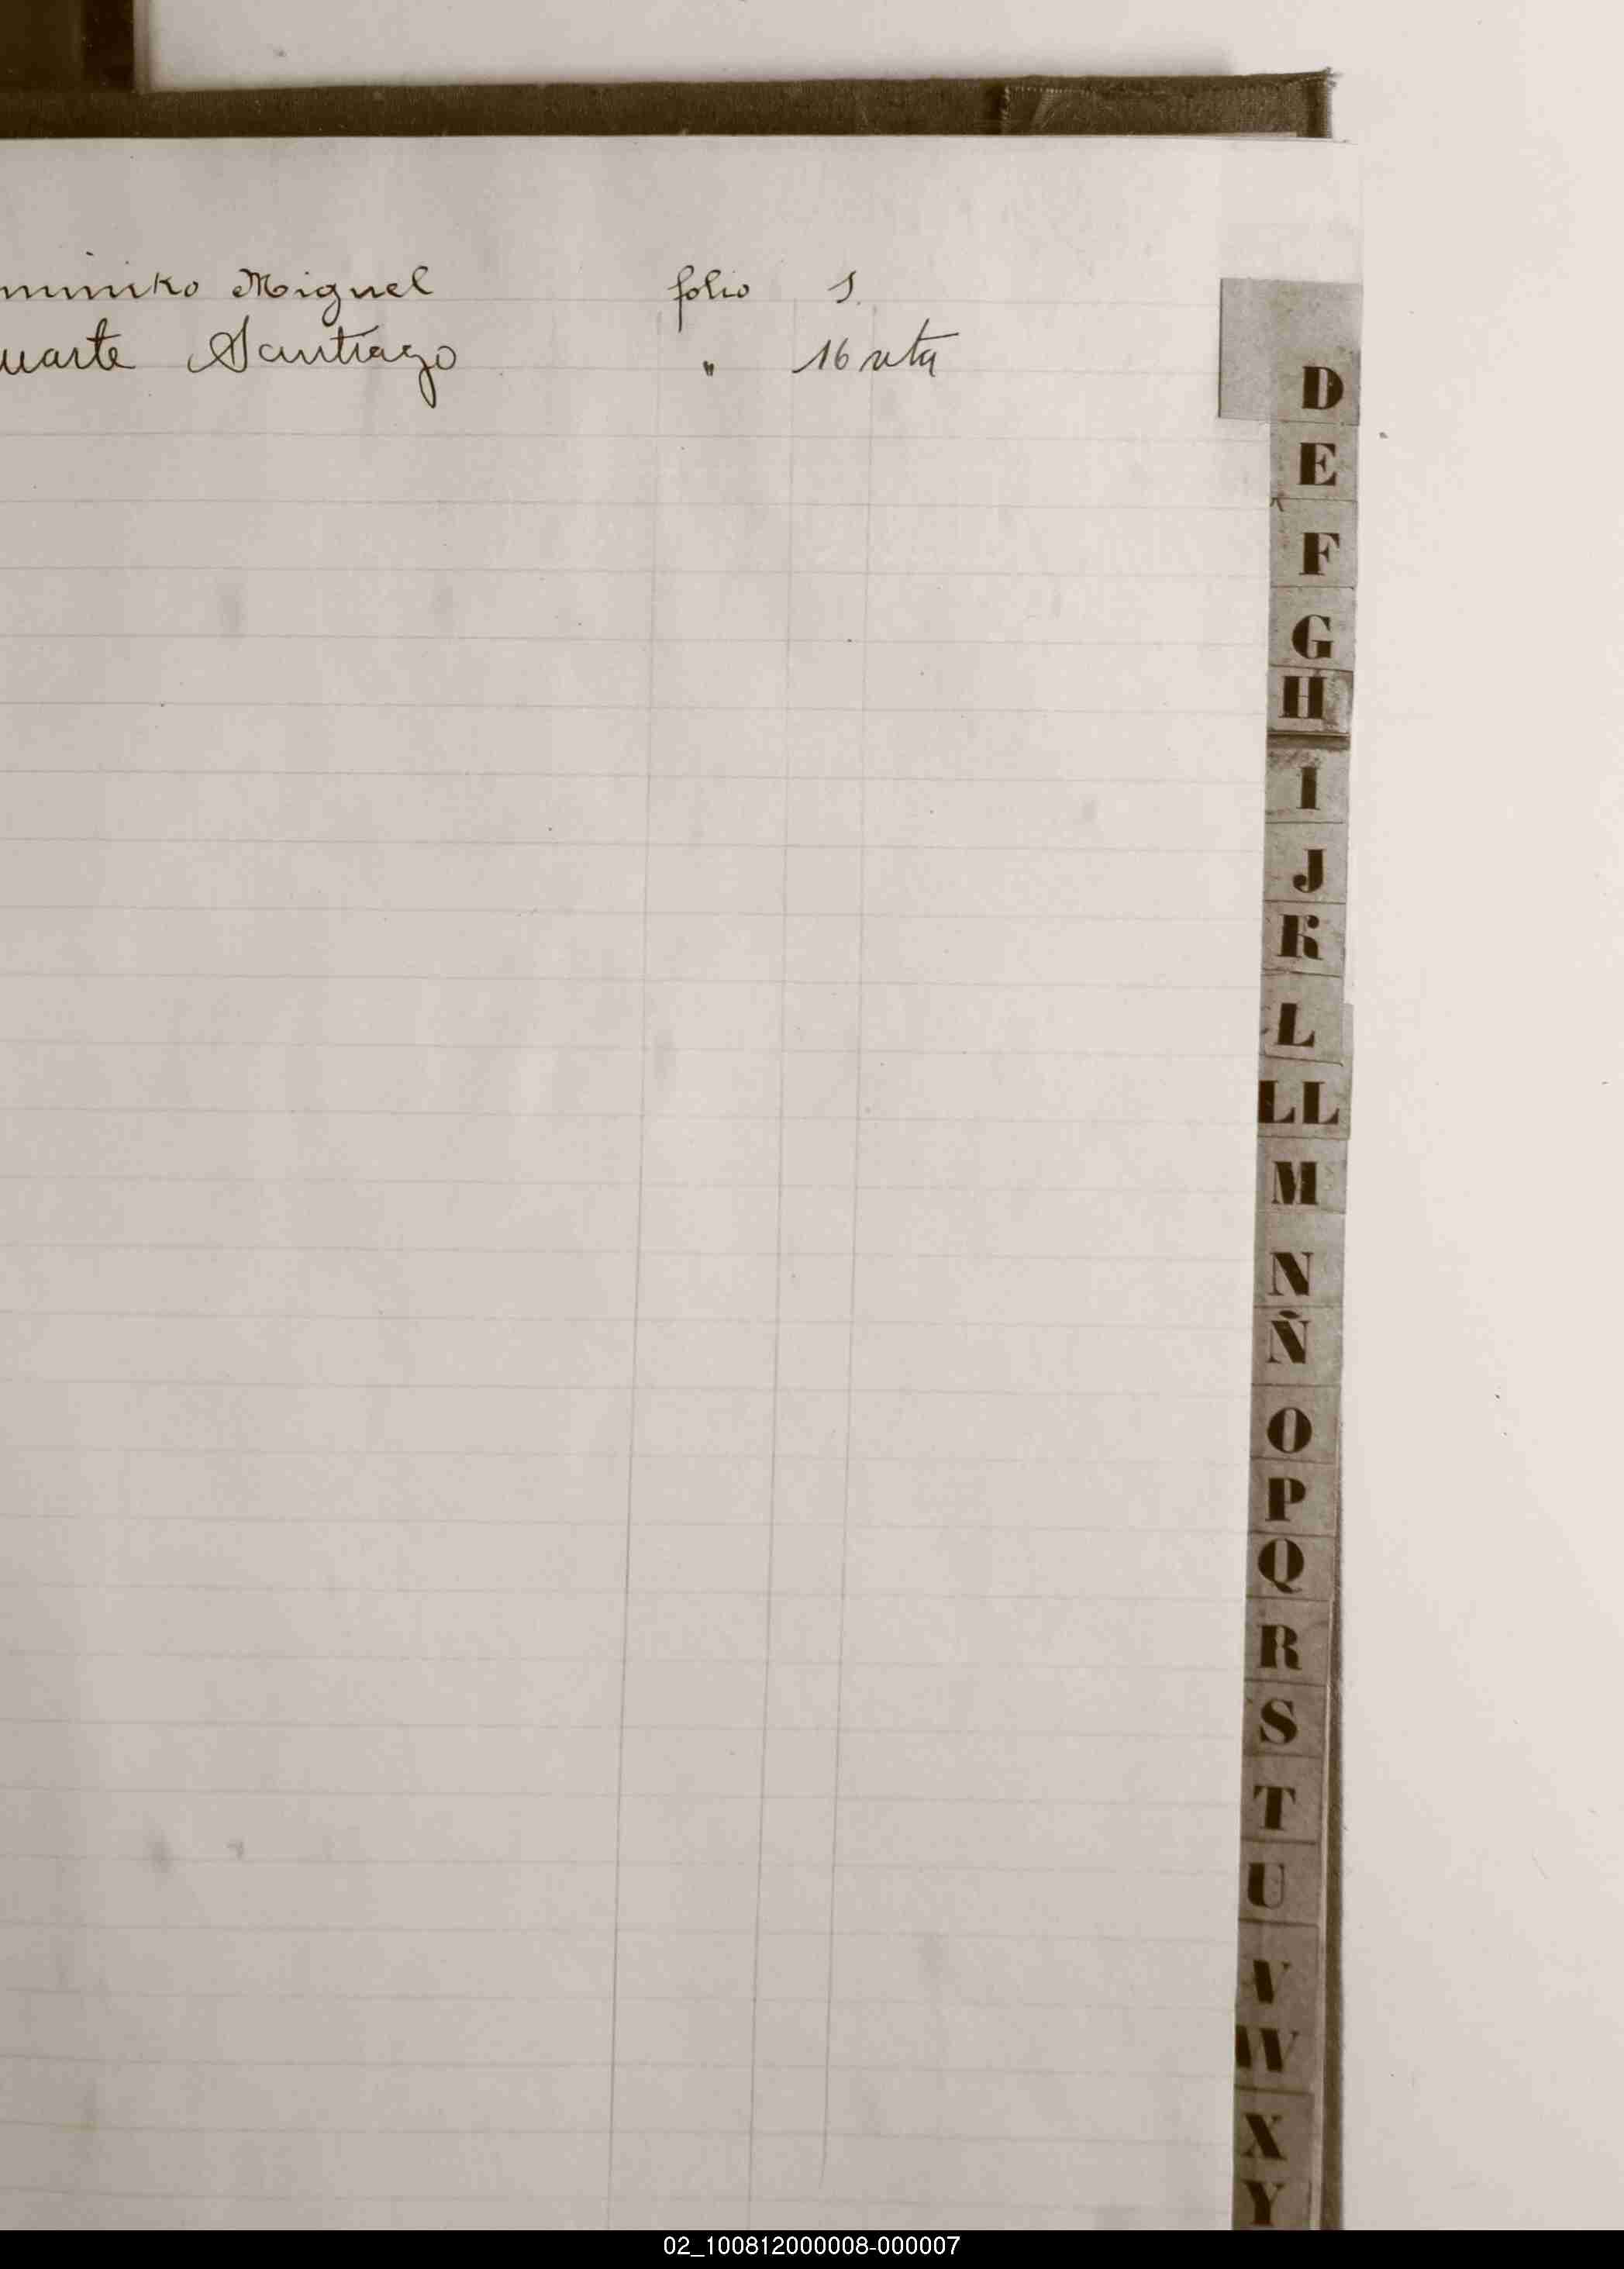 Miguel folio 1.
uarte Santiago " 16 vta
D
E
F
G
H
I
J
K
L
LL
M
N
Ñ
O
P
Q
R
S
T
U
V
W
X
Y
02_100812000008-000007